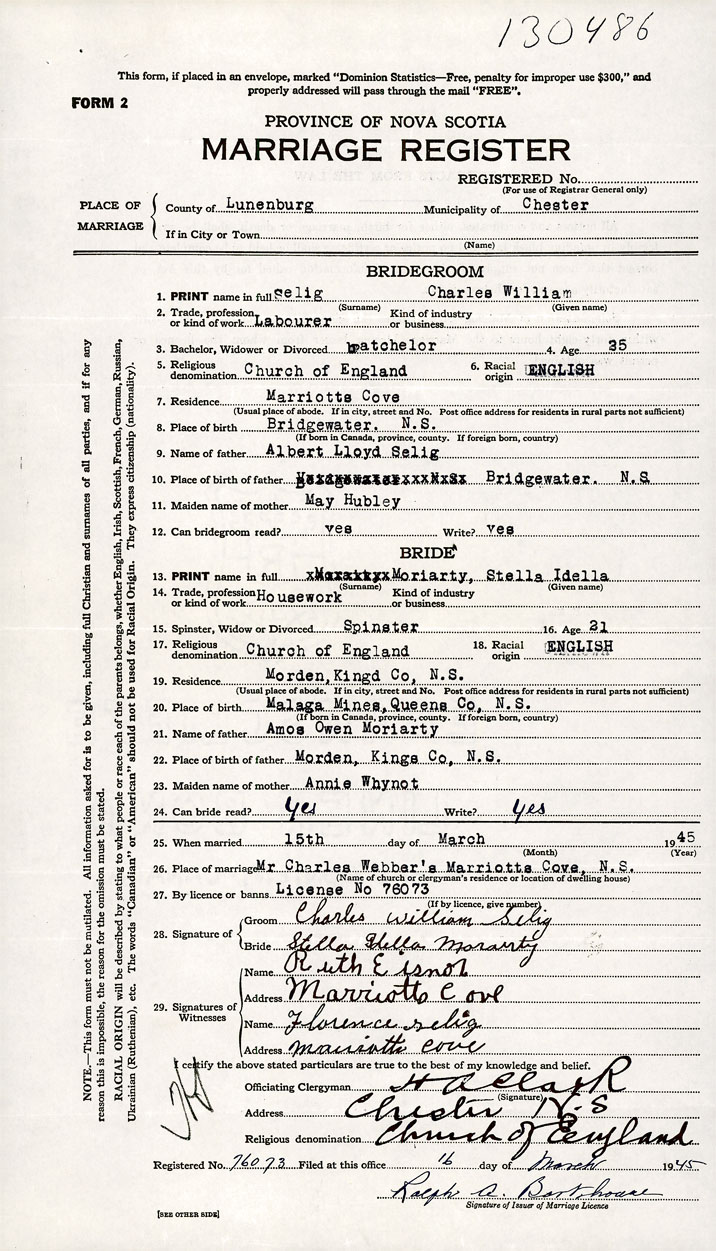 130486
This form, if placed in an envelope, marked "Dominion Statistics—Free, penalty for improper use $300," and
properly addressed will pass through the mail "FREE".
FORM 2
PROVINCE OF NOVA SCOTIA
MARRIAGE REGISTER
REGISTERED No.
(For use of Registrar General only)
PLACE OF MARRIAGE
County of Lunenburg Municipality of Chester
If in City or Town
(Name)
BRIDEGROOM
1. PRINT name in full Selig Charles William
(Surname) (Given name)
2. Trade, profession or kind of work Labourer Kind of industry or business
3. Bachelor, Widower or Divorced batchelor 4. Age 25
5. Religious denomination Church of England 6. Racial origin ENGLISH
7. Residence Marriotts Cove
(Usual place of abode. If in city, street and No. Post office address for residents in rural parts not sufficient)
8. Place of birth Bridgewater. N.S.
(If born in Canada, province, county. If foreign born, country)
9. Name of father Albert Lloyd Selig
10. Place of birth of father Bridgewater. N.S
11. Maiden name of mother May Hubley
12. Can bridegroom read? yes Write? yes
BRIDE
13. PRINT name in full Moriarty, Stella Idella
(Surname) (Given name)
14. Trade, profession or kind of work Housework Kind of industry or business
15. Spinster, Widow or Divorced Spinster 16. Age 21
17. Religious denomination Church of England 18. Racial origin ENGLISH
19. Residence Morden, Kingd Co, N.S.
(Usual place of abode. If in city, street and No. Post office address for residents in rural parts not sufficient)
20. Place of birth Malaga Mines, Queens Co, N.S.
(If born in Canada, province, county. If foreign born, country)
21. Name of father Amos Owen Moriarty
22. Place of birth of father Morden, Kings Co, N.S.
23. Maiden name of mother Annie Whynot
24. Can bride read? yes Write? yes
25. When married 15th day of March 1945
(Month) (Year)
26. Place of marriage Mr Charles Webber's Marriotts Cove, N.S.
(Name of church or clergyman's residence or location of dwelling house)
27. By licence or banns License No 76073
(If by licence, give number)
28. Signature of
Groom Charles William Selig
Bride Stella Idella Morairty
29. Signatures of Witnesses
Name Ruth Eisnor
Address Marriotts Cove
Name Florence Selig
Address Marriotts Cove
I certify the above stated particulars are true to the best of my knowledge and belief.
Officiating Clergyman H A Clark
(Signature)
Address Chester N.S
Religious denomination Church of England
Registered No. 76073 Filed at this office 16 day of March 1945
Ralph A. Barkhouse
Signature of Issuer of Marriage Licence
[SEE OTHER SIDE]
NOTE.—This form must not be mutilated. All information asked for is to be given, including full Christian and surnames of all parties, and if for any
reason this is impossible, the reason for the omission must be stated.
RACIAL ORIGIN will be described by stating to what people or race each of the parents belongs, whether English, Irish, Scottish, French, German, Russian,
Ukrainian (Ruthenian), etc. The words "Canadian" or "American" should not be used for Racial Origin. They express citizenship (nationality).